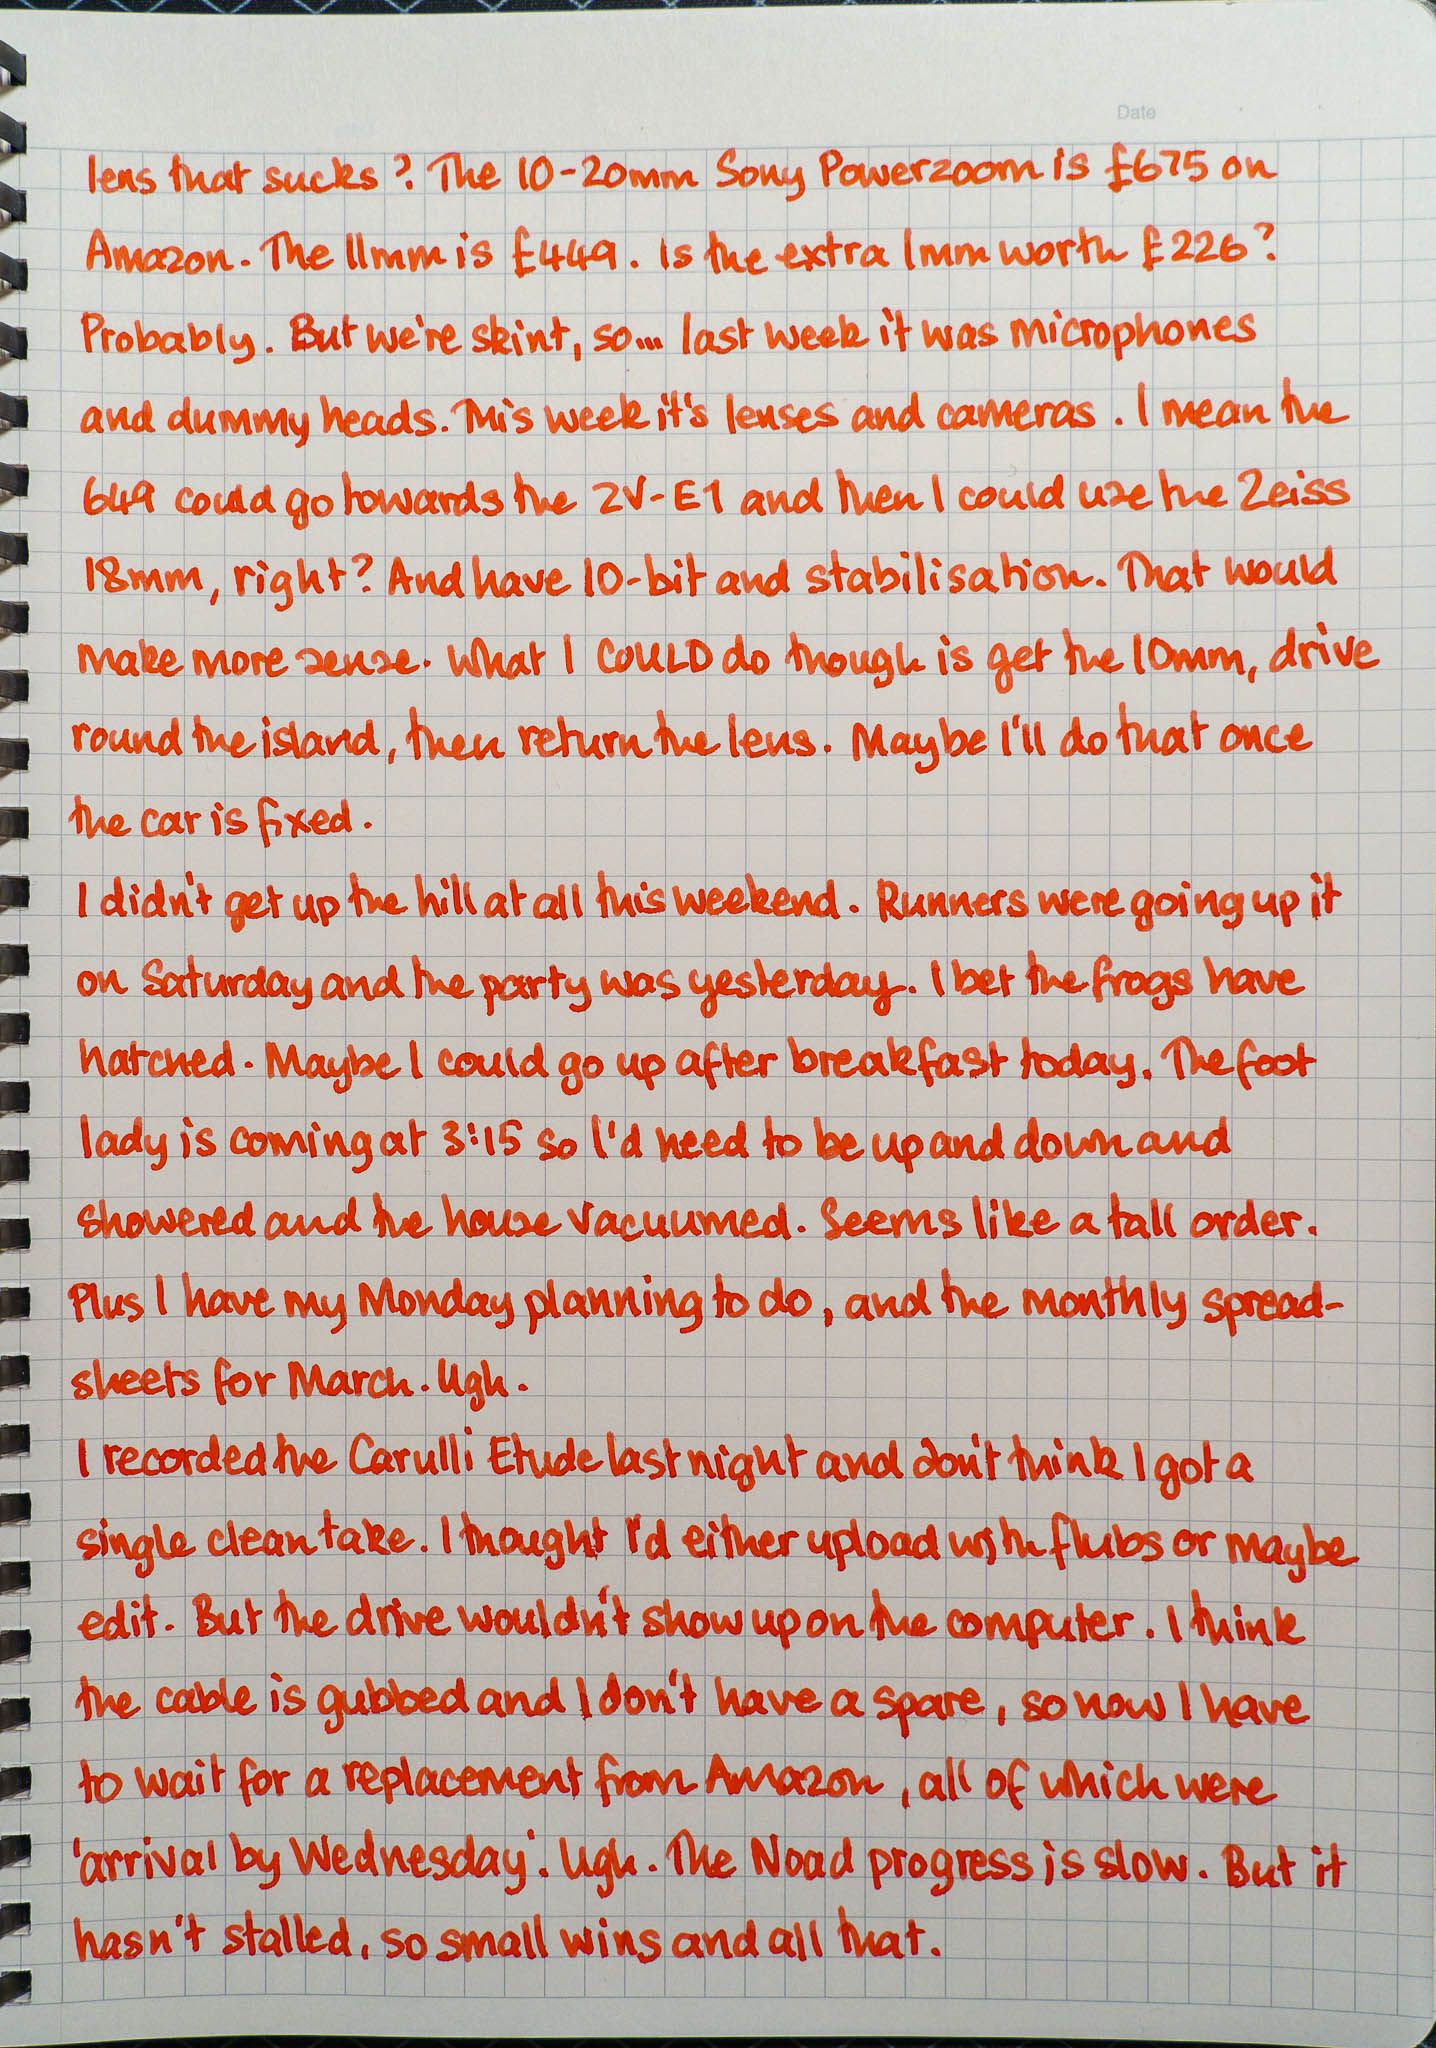 Date
lens that sucks? The 10-20mm Sony Powerzoom is £675 on
Amazon. The 11mm is £449. Is the extra 1mm worth £226?
Probably. But we're skint, so... last week it was microphones
and dummy heads. This week it's lenses and cameras. I mean the
649 could go towards the ZV-E1 and then I could use the Zeiss
18mm, right? And have 10-bit and stabilisation. That would
make more sense. What I COULD do though is get the 10mm, drive
round the island, then return the lens. Maybe I'll do that once
the car is fixed.
I didn't get up the hill at all this weekend. Runners were going up it
on Saturday and the party was yesterday. I bet the frogs have
hatched. Maybe I could go up after breakfast today. The foot
lady is coming at 3:15 so I'd need to be up and down and
showered and the house vacuumed. Seems like a tall order.
Plus I have my Monday planning to do, and the monthly spread-
sheets for March. Ugh.
I recorded the Carulli Etude last night and don't think I got a
single clean take. I thought I'd either upload with flubs or maybe
edit. But the drive wouldn't show up on the computer. I think
the cable is gubbed and I don't have a spare, so now I have
to wait for a replacement from Amazon, all of which were
'arrival by Wednesday'. Ugh. The Noad progress is slow. But it
hasn't stalled, so small wins and all that.